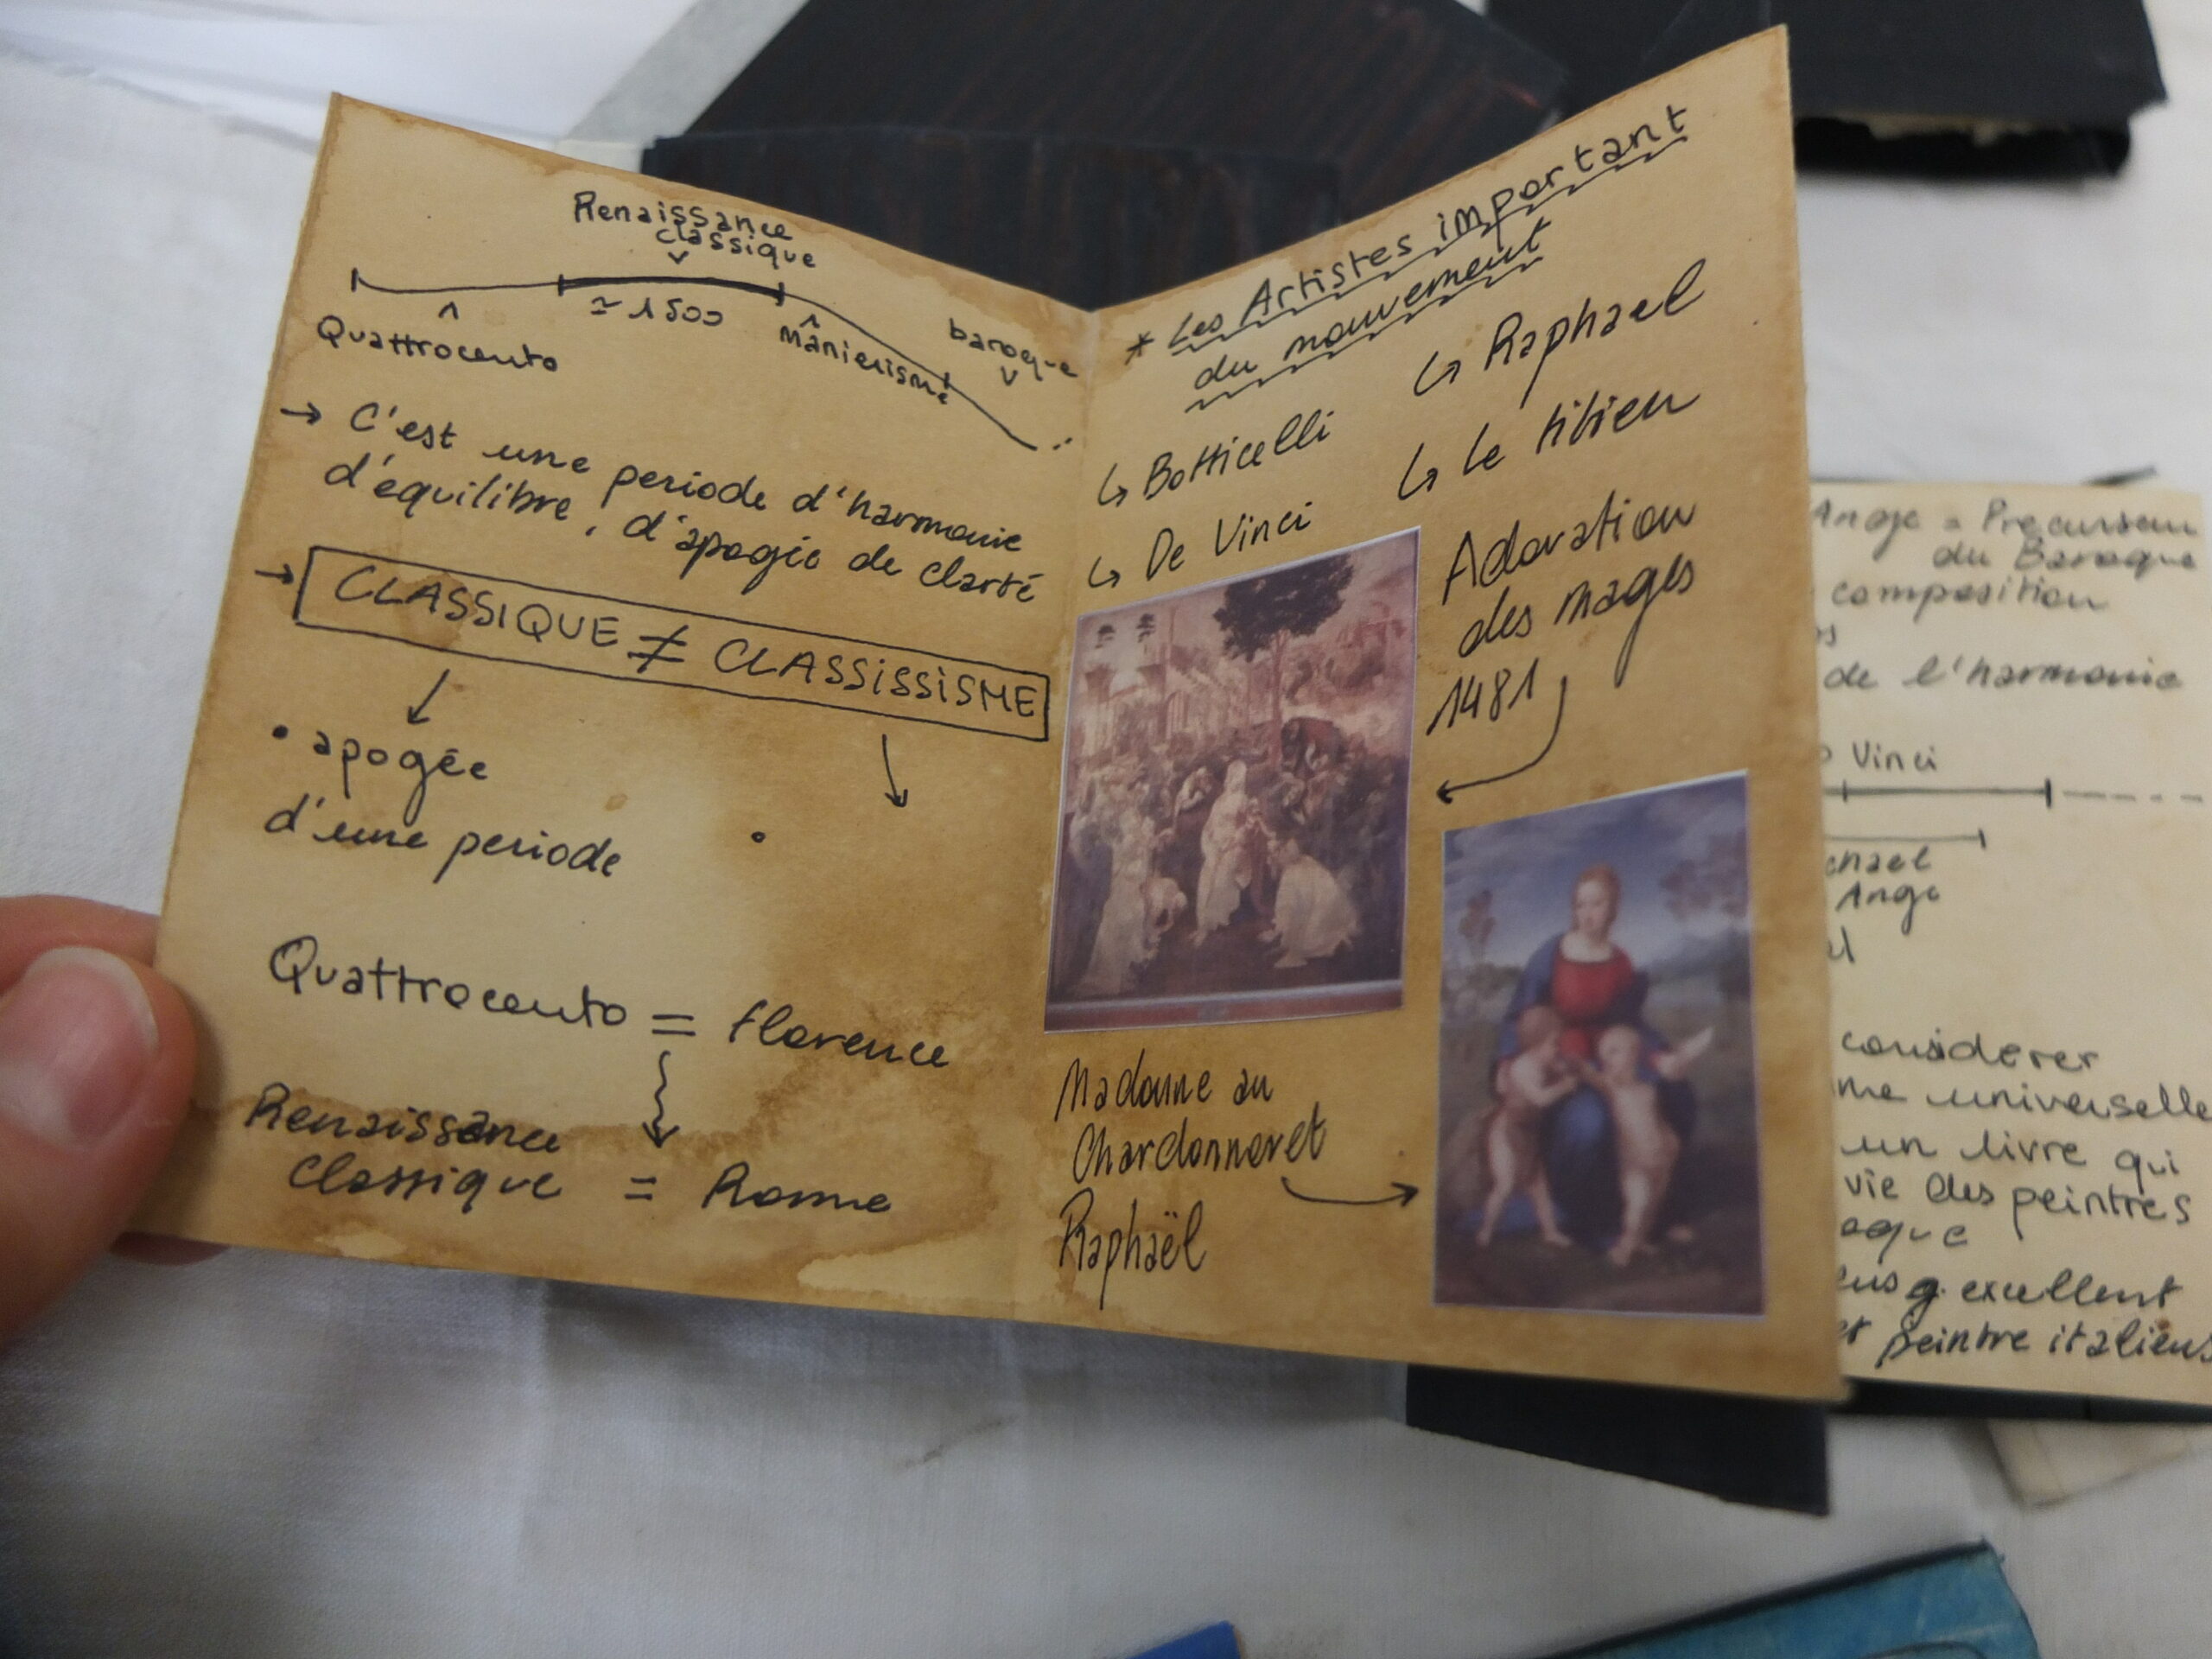 Renaissance
classique
≃ 1500
Quattrocento
mânierisme
baroque
→ C'est une periode d'harmonie
d'équilibre, d'apogée de clarté
→ CLASSIQUE ≠ CLASSISSISME
• apogée
d'une periode
•
Quattrocento = florence
Renaissance
classique = Rome
* Les Artistes important
du mouvement
↳ Botticelli
↳ De Vinci
↳ Raphael
↳ Le titien
Adoration
des mages
1481
Madame au
Chardonneret
Raphaël
Ange = Precurseur
du Baroque
composition
de l'harmonie
Vinci
Ange
considerer
universelle
un livre qui
vie des peintres
excellent
peintre italiens